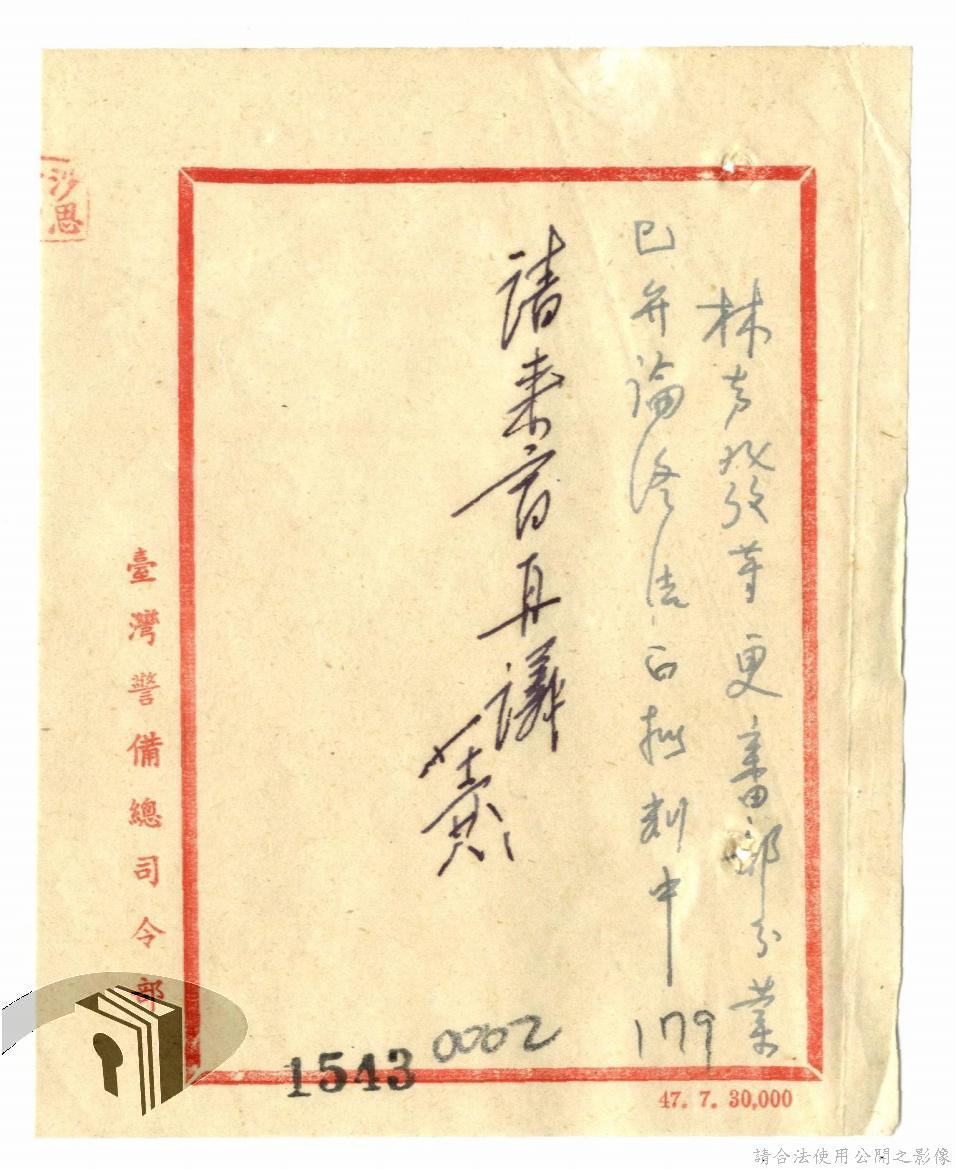 林 發等更審部分業
已弁論終結 擬判中
179
請 再議
沙思
臺灣警備總司令部
0002
1543
47. 7. 30,000
請合法使用公開之影像